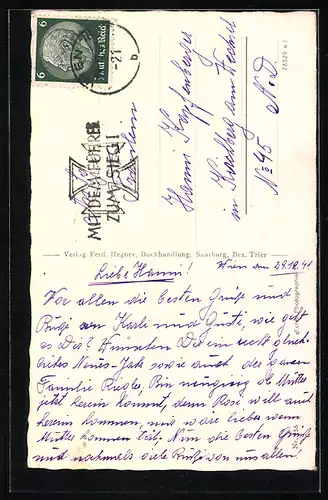 6 6
Deutsches Reich
WIEN
-2.1
b
MIT DEM FÜHRER
ZUM SIEG!
Fräulein
Hanni Kampfenberger
in Kirchberg am Wechsel
No 45 N.D.
78529 a 1
Verlag Ferd. Hegner, Buchhandlung, Saarburg, Bez. Trier
Wien am 29.12.41
Liebe Hanni!
Vor allen die besten Grüße und
Bußi von Karli und Gusti, wie geht
es Dir? Wünschen Dir ein recht glück-
liches Neues-Jahr sowie auch der ganzen
Familie Riegler, Bin neugierig ob Mutter
jetzt herein kommt, denn Rosi will auch
herein kommen, uns wäre lieber wenn
Mutter kommen tät. Nun die besten Grüße
und nochmals viele Bußi von uns allen!